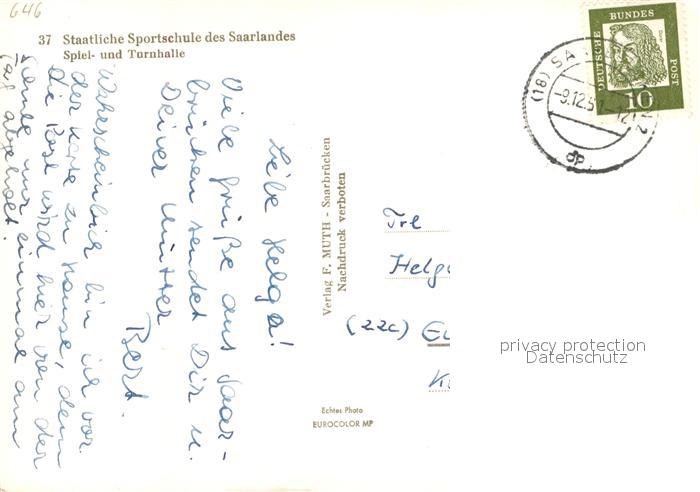 646
37 Staatliche Sportschule des Saarlandes
Spiel- und Turnhalle
Liebe Helga!
Viele Grüße aus Saar-
brücken sendet Dir u.
Deiner Mutter
Bert.
Wahrscheinlich bin ich vor
der Karte zu Hause, denn
die Post wird hier von der
Schule nur einmal am
Tag abgeholt.
Verlag F. MUTH - Saarbrücken
Nachdruck verboten
Echtes Photo
EUROCOLOR MP
DEUTSCHE BUNDES POST
10
(18) SA
-9.12.
Frl
Helg
(22c)
privacy protection
Datenschutz